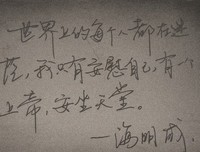 世界上的每个人都在迷
茫，我只有安慰自己，有一个
上帝，安坐天堂。
—海明威